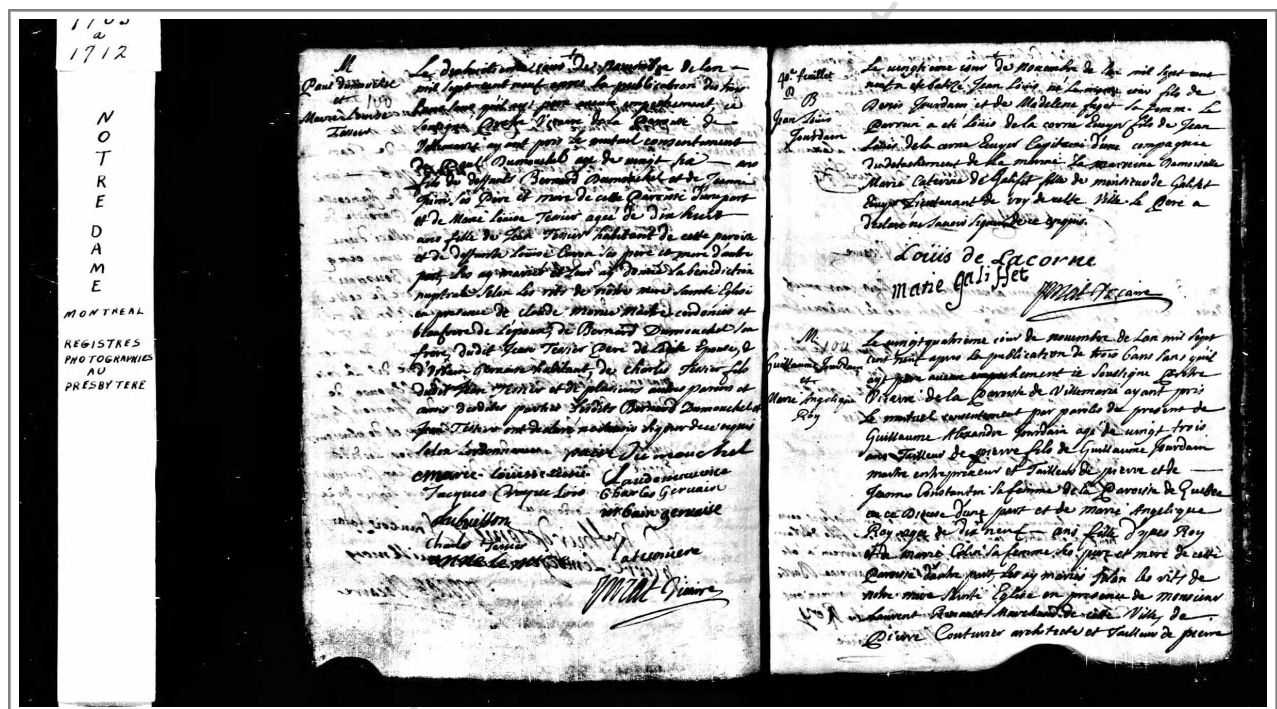 1703
a
1712
NOTRE DAME
MONTREAL
REGISTRES
PHOTOGRAPHIES
AU
PRESBYTERE
M
Paul dumouchel
et
Marie Louise
Tessier
Le dixhuitieme jour de Novembre de lan
mil sept cent neuf apres la publication des trois
bans sans quil ayt paru aucun empeschement, je
soussigné Prestre Vicaire de la Paroisse de
Villemarie ayant pris le mutuel consentement
de Paul Dumouchel agé de vingt six ans
fils de deffunts Bernard Dumouchel et de Jeanne
Juin ses Pere et mere de cette Paroisse d'une part
et de Marie Louise Tessier agée de dix huit
ans fille de Jean Tessier habitant de cette paroisse
et de deffunte Louise Caron ses pere et mere d'autre
part, Les ay mariés et leur ay donné la benediction
nuptiale selon les rits de nostre mere Sainte Eglise
en presence de claude Maistre cordonier et
de Bernard Dumouchel son
frere, dudit Jean Tessier Pere de Epouse, d
d'Urbain Gervaise habitant, de charles Tessier fils
dudit Jean Tessier et de plusieurs autres parens et
amis desdites parties Lesdits Bernard Dumouchel et
Jean Tessier ont declaré ne scavoir signer de ce enquis
selon l'ordonnance paul Dumouchel
marie louise tessie
Jacques Charles Gervaise
urbain gervaise
dubuisson
charles Tessier
latuniere
Priat Vicaire
40e. feuillet
B
Jean Louis
Jourdain
Le vingtieme jour de Novembre de l'an mil sept cent
neuf a eté batizé Jean Louis, né fils de
Denis Jourdain et de Madelene fagot sa femme. Le
Parrain a eté Louis de la corne Ecuyer fils de Jean
Louis de la corne Ecuyer Capitaine d'une compagnie
du detachement de la marine La marreine Damoiselle
Marie Caterine de Galifet fille de monsieur de Galifet
Ecuyer Lieutenant de roy de cette ville. Le Pere a
declaré ne scavoir signer de ce enquis.
Louis de Lacorne
marie galiffet
Priat Vicaire
M.
Guillaume Jourdain
et
Marie Angelique
Roy
Le vingtquatrieme jour de novembre de Lan mil sept
cent neuf apres la publication de trois bans sans quil
ayt paru aucun empeschement je soussigné Prestre
Vicaire de la Paroisse de Villemarie ayant pris
le mutuel consentement par paroles de present de
Guillaume Alexandre Jourdain agé de vingt trois
ans Tailleur de pierre fils de Guillaume Jourdain
maitre entrepreneur et Tailleur de pierre et de
Jeanne Constantin sa femme de la Paroisse de Quebec
en ce Diocese d'une part et de Marie Angelique
Roy agée de dix neuf ans fille d'yves Roy
et de marie Colin sa femme ses pere et mere de cette
Paroisse d'autre part, Les ay mariés selon les rits de
notre mere Sainte Eglise en presence de monsieur
Laurent Renault Marchand de cette Ville, de
Pierre Couturier architecte et Tailleur de pierre